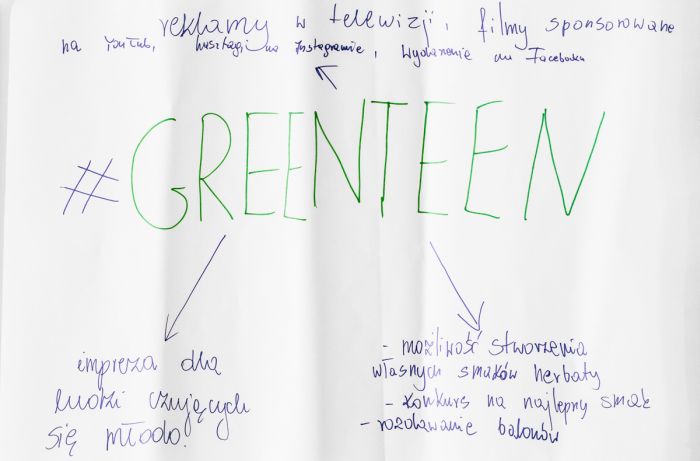 reklamy w telewizji, filmy sponsorowane
na YouTube, hasztagi na Instagramie, wydarzenie na Facebooku
#GREENTEEN
impreza dla
ludzi czujących
się młodo.
- możliwość stworzenia
własnych smaków herbaty
- konkurs na najlepszy smak
- rozdawanie balonów